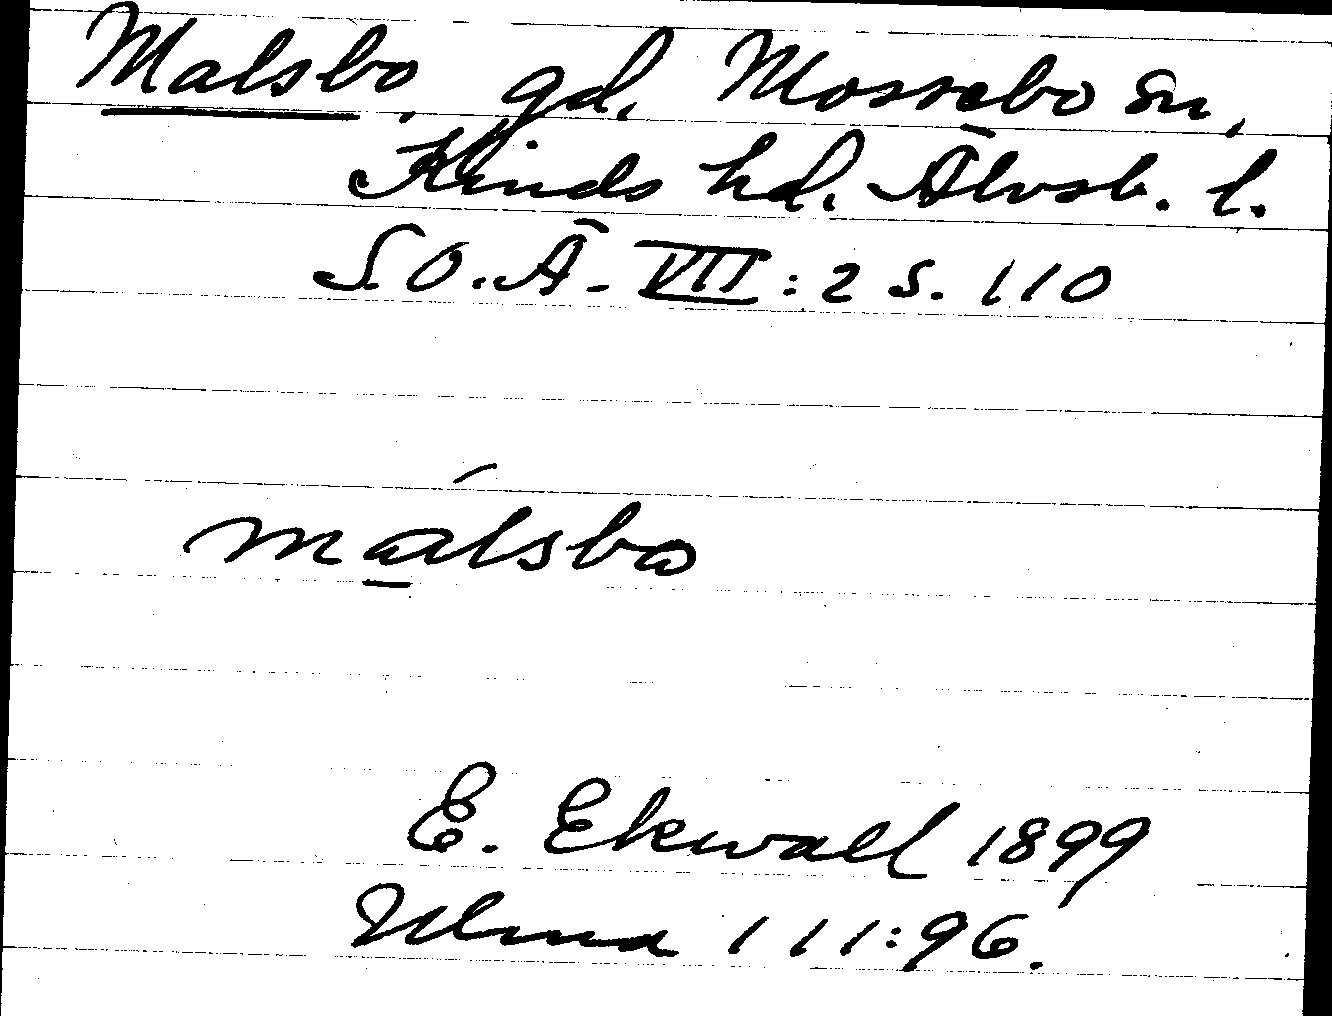 Malsbo, gd. Mossebo sn,
Kinds hd. Älvsb. l.
SO.Ä - VII : 2 S. 110
málsbo
E. Ekwall 1899
Ulma 111:96.